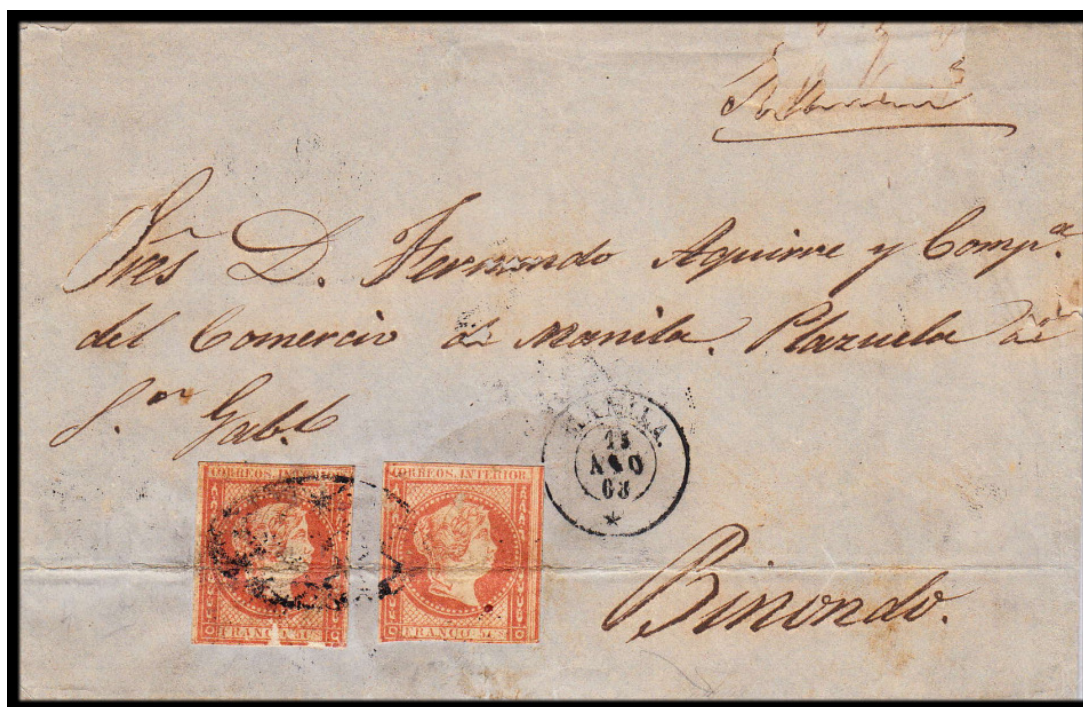 Sres D. Fernando Aguirre y Compª.
del Comercio de Manila. Plazuela de
S.ⁿ Gab.l
MANILA.
13
AGO
63
CORREOS. INTERIOR.
FRANCO.
CORREOS. INTERIOR.
FRANCO.
Binondo.